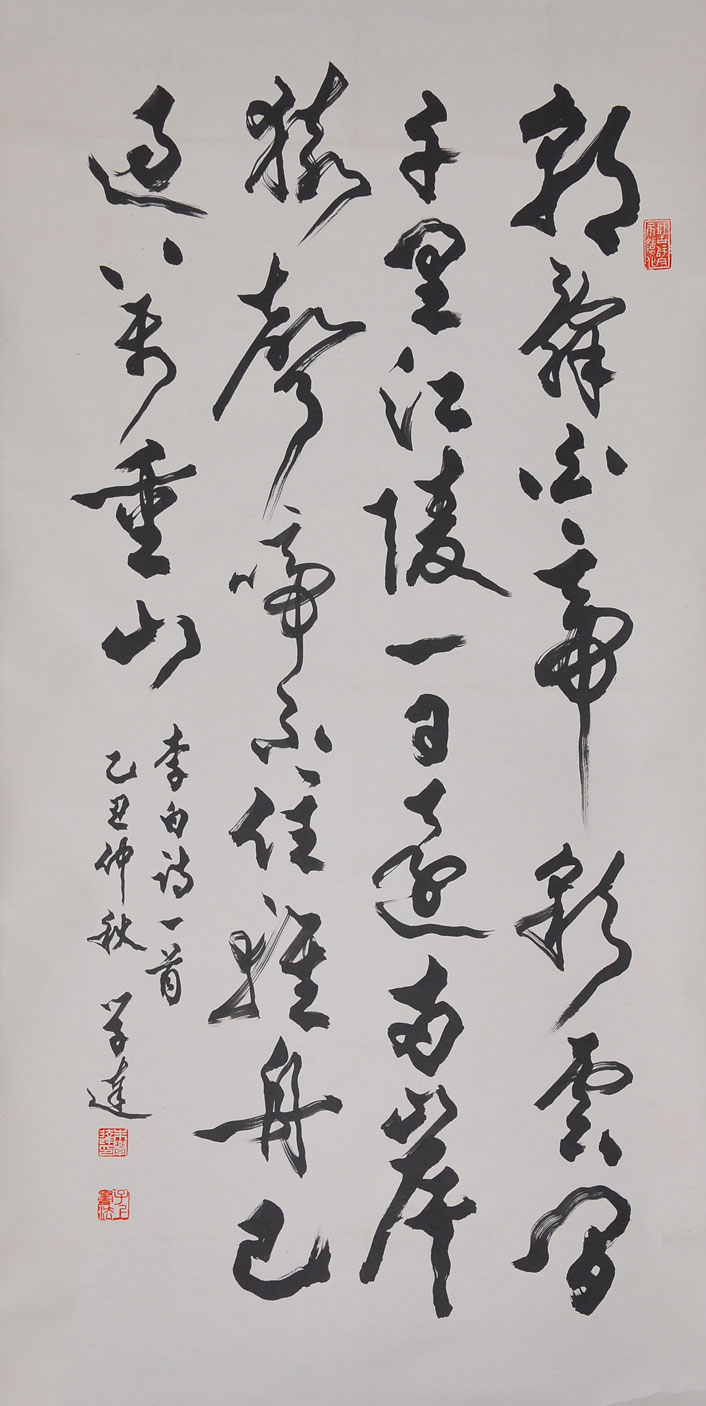 朝辭白帝彩雲間
千里江陵一日還兩岸
猿聲啼不住輕舟已
過萬重山
李白詩一首
乙丑仲秋 学達